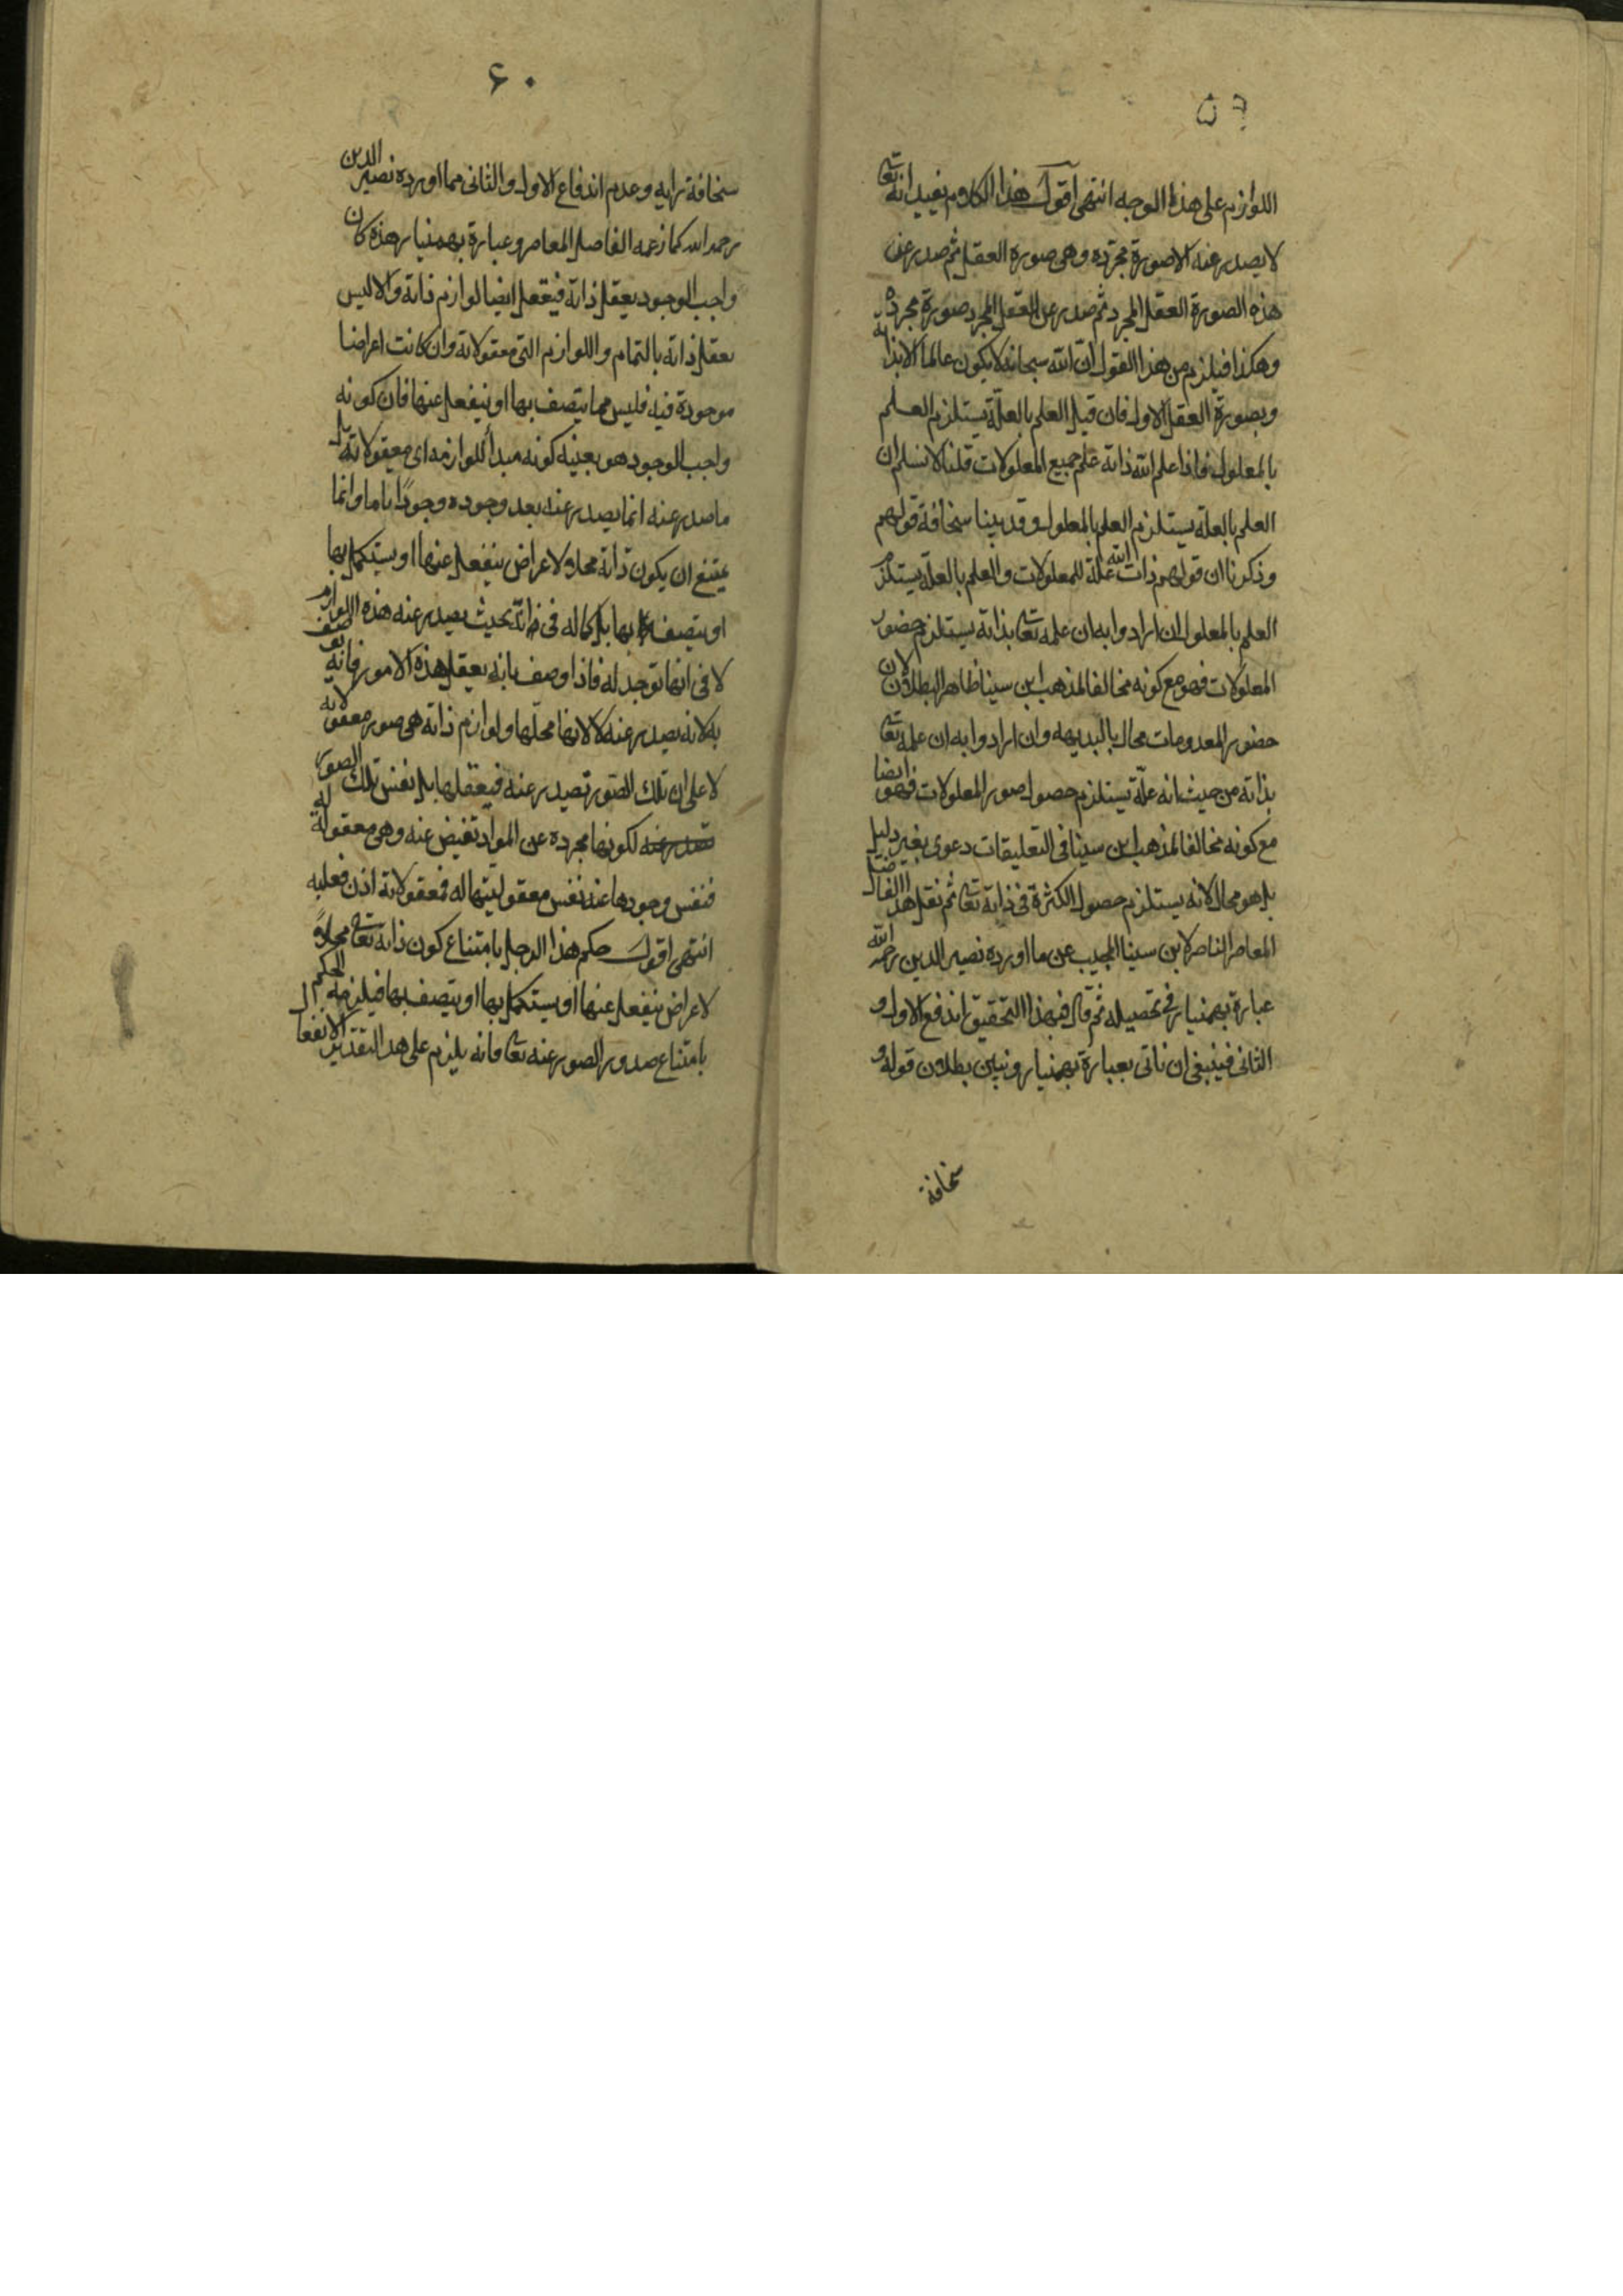 ۵۹
اللوازم على هذا الوجه انتهى اقول هذا الكلام يفيد انه تعا
لا يصدر عنه الا صورة مجرده وهى صورة العقل ثم صدر عن
هذه الصورة العقل المجرد ثم صدر عن العقل المجرد صورة مجردة
وهكذا فيلزم من هذا القول ان الله سبحانه لا يكون عالما الا بذاته
وبصورة العقل الاول فان قيل العلم بالعلّة يستلزم العلم
بالمعلول فاذا علم الله ذاته علم جميع المعلولات قلنا لا نسلم ان
العلم بالعلة يستلزم العلم بالمعلول وقد بينا سخافة قولهم
وذكرنا ان قولهم ذات الله علة للمعلولات والعلم بالعلة يستلزم
العلم بالمعلول ان ارادوا به ان علمه تعا بذاته يستلزم حضور
المعلولات فهو مع كونه مخالفا لمذهب ابن سينا ظاهر البطلان لان
حضور المعدومات محال بالبديهه وان ارادوا به ان علمه تعا
بذاته من حيث انه علّة يستلزم حصول صور المعلولات فهو ايضا
مع كونه مخالفا لمذهب ابن سينا فى التعليقات دعوى بغير دليل
بل هو محال لانه يستلزم حصول الكثرة فى ذاته تعا ثم نقل هذا الفاضل
المعاصر الناصر لابن سينا المجيب عن ما اورده نصير الدين رحمه الله
عبارة بهمنيار فى تحصيله ثم قال فبهذا التحقيق اندفع الاول و
الثانى فينبغى ان ناتى بعبارة بهمنيار ونبين بطلان قوله و
سخافة
۶۰
سخافة رايه وعدم اندفاع الاول والثانى مما اورده نصير الدين
رحمه الله كما زعمه الفاضل المعاصر وعبارة بهمنيار هذه كان
واجب الوجود يعقل ذاته فيعقل ايضا لوازم ذاته والا ليس
يعقل ذاته بالتمام واللوازم التى معقولاته وان كانت اعراضا
موجودة فيه فليس مما يتصف بها او ينفعل عنها فان كونه
واجب الوجود هو بعينه كونه مبدأ للوازمه اى معقولاته بل
ما صدر عنه انما يصدر عنه بعد وجوده وجودًا تاما وانما
يمتنع ان يكون ذاته محلا لاعراض ينفعل عنها او يستكمل بها
او يتصف بها بل كماله فى ذاته بحيث يصدر عنه هذه اللوازم
لا فى انها توجد له فاذا وصف بانه يعقل هذه الامور فانه يوصف
به لانه يصدر عنه لا لانها محلّها ولوازم ذاته هى صور معقولاته
لا على ان تلك الصور تصدر عنه فيعقلها بل نفس تلك الصور
تصدر عنه لكونها مجرده عن المواد تفيض عنه وهى معقولة له
فنفس وجودها عنه نفس معقوليتها له فمعقولاته اذن فعليه
انتهى اقول حكم هذا الرجل بامتناع كون ذاته تعا محلاً
لاعراض ينفعل عنها او يستكمل بها او يتصف بها فيلزمه الحكم
بامتناع صدور الصور عنه تعا فانه يلزم على هذا التقدير الانفعال